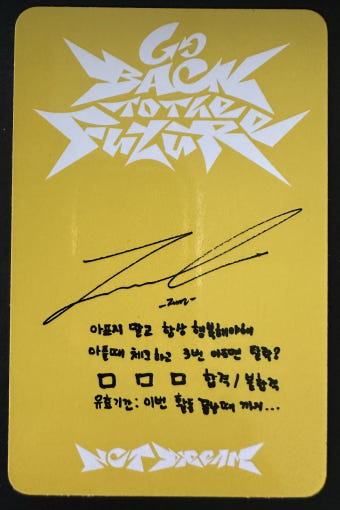 Go
BACK
TO THE
FUTURE
-Jwn-
아프지 말고 항상 행복해야해
아플때 체크하고 3번 아프면 탈락?
□ □ □ 합격 / 불합격
유효기간: 이번 활동 끝날때 까지...
NCT DREAM